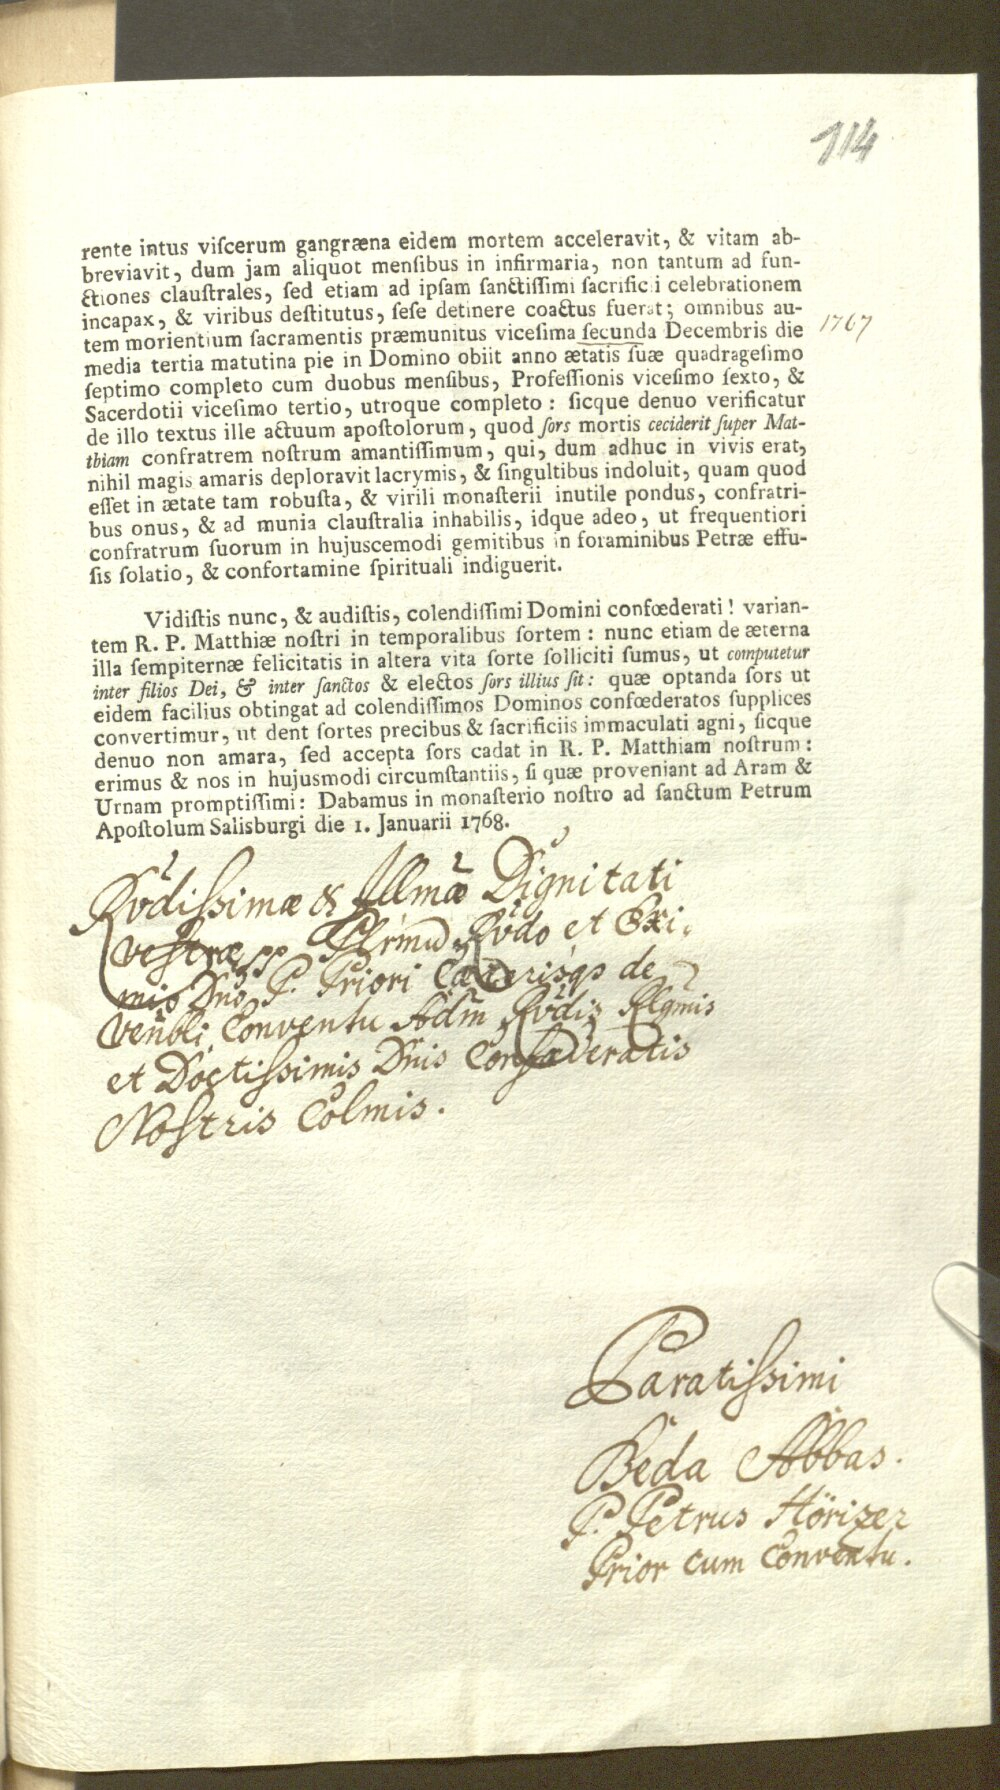 114
rente intus viſcerum gangræna eidem mortem acceleravit, & vitam ab-
breviavit, dum jam aliquot menſibus in infirmaria, non tantum ad fun-
ctiones clauſtrales, ſed etiam ad ipſam ſanctiſſimi ſacrificii celebrationem
incapax, & viribus deſtitutus, ſeſe detinere coactus fuerat; omnibus au-
tem morientium ſacramentis præmunitus viceſima ſecunda Decembris die 1767
media tertia matutina pie in Domino obiit anno ætatis ſuæ quadrageſimo
ſeptimo completo cum duobus menſibus, Profeſſionis viceſimo ſexto, &
Sacerdotii viceſimo tertio, utroque completo: ſicque denuo verificatur
de illo textus ille actuum apoſtolorum, quod ſors mortis ceciderit ſuper Mat-
thiam confratrem noſtrum amantiſſimum, qui, dum adhuc in vivis erat,
nihil magis amaris deploravit lacrymis, & ſingultibus indoluit, quam quod
eſſet in ætate tam robuſta, & virili monaſterii inutile pondus, confratri-
bus onus, & ad munia clauſtralia inhabilis, idque adeo, ut frequentiori
confratrum ſuorum in hujuscemodi gemitibus in foraminibus Petræ effu-
ſis ſolatio, & confortamine ſpirituali indiguerit.
Vidiſtis nunc, & audiſtis, colendiſſimi Domini confœderati! varian-
tem R. P. Matthiæ noſtri in temporalibus ſortem: nunc etiam de æterna
illa ſempiternæ felicitatis in altera vita ſorte ſolliciti ſumus, ut computetur
inter filios Dei, & inter ſanctos & electos ſors illius ſit: quæ optanda ſors ut
eidem facilius obtingat ad colendiſſimos Dominos confœderatos ſupplices
convertimur, ut dent ſortes precibus & ſacrificiis immaculati agni, ſicque
denuo non amara, ſed accepta ſors cadat in R. P. Matthiam noſtrum:
erimus & nos in hujusmodi circumſtantiis, ſi quæ proveniant ad Aram &
Urnam promptiſſimi: Dabamus in monaſterio noſtro ad ſanctum Petrum
Apoſtolum Salisburgi die 1. Januarii 1768.
Rvdiſsimæ & Illmæ Dignitati
Veſtræ Rvdo et Exi-
mio Dno P. Priori Cæterisqs de
Venbli Conventu Adm Rvdis Rlgmis
et Doctiſsimis Dnis Confæderatis
Noſtris Colmis.
Paratiſsimi
Beda Abbas.
P. Petrus Hörizer
Prior cum Conventu.